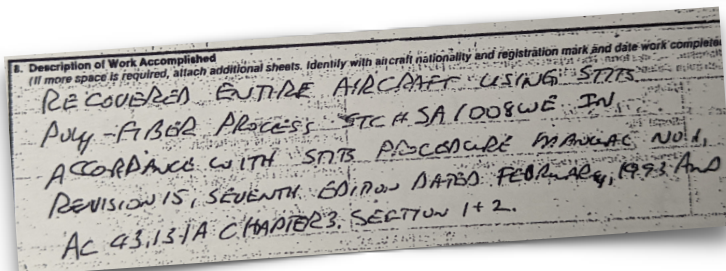 8. Description of Work Accomplished
(If more space is required, attach additional sheets. Identify with aircraft nationality and registration mark and date work completed
RECOVERED ENTIRE AIRCRAFT USING STITS
POLY-FIBER PROCESS STC # SA1008WE IN
ACCORDANCE WITH STITS PROCEDURE MANUAL NO 1,
REVISION 15, SEVENTH EDITION DATED FEBRUARY, 1993 AND
AC 43.13-1A CHAPTER 3. SECTION 1+2.